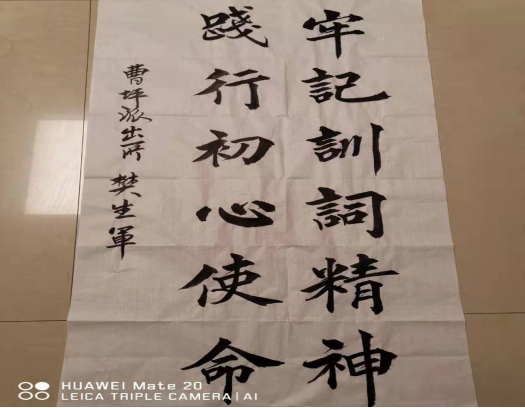 牢記訓詞精神
踐行初心使命
曹坪派出所 樊生軍
HUAWEI Mate 20
LEICA TRIPLE CAMERA | AI